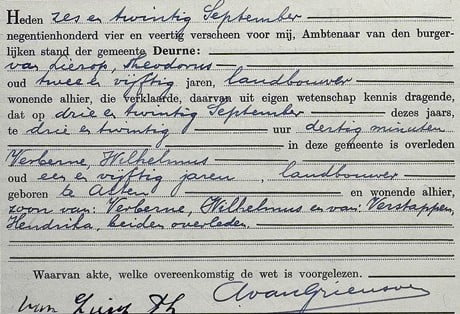 Heden zes en twintig September
negentienhonderd vier en veertig verscheen voor mij, Ambtenaar van den burger-
lijken stand der gemeente Deurne:
van Lierop, Theodorus
oud twee en vijftig jaren, landbouwer
wonende alhier, die verklaarde, daarvan uit eigen wetenschap kennis dragende,
dat op drie en twintig September dezes jaars,
te drie en twintig uur dertig minuten
in deze gemeente is overleden
Verberne, Wilhelmus
oud een en vijftig jaren, landbouwer
geboren te Asten en wonende alhier,
zoon van: Verberne, Wilhelmus en van: Verstappen,
Hendrika, beiden overleden.
Waarvan akte, welke overeenkomstig de wet is voorgelezen.
van Lierop Th AvanGriensven